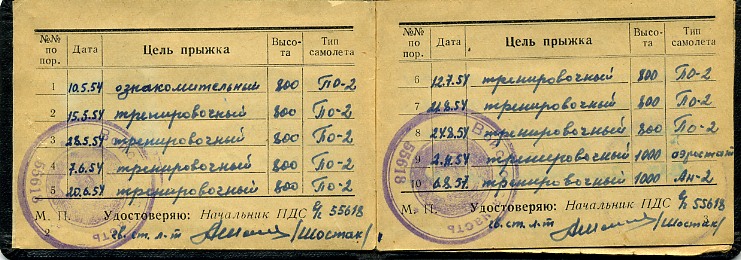 №№ по пор. Дата Цель прыжка Высота Тип самолета
1 10.5.54 ознакомительный 800 По-2
2 15.5.54 тренировочный 800 По-2
3 28.5.54 тренировочный 800 По-2
4 7.6.54 тренировочный 800 По-2
5 20.6.54 тренировочный 800 По-2
М. П. Удостоверяю: Начальник ПДС в/ч 55618
гв. ст. л-т /Шостак/
2
55618
№№ по пор. Дата Цель прыжка Высота Тип самолета
6 12.7.54 тренировочный 800 По-2
7 тренировочный 800 По-2
8 24.8.54 тренировочный 800 По-2
9 тренировочный 1000 аэростат
10 6.8.57 тренировочный 1000 Ан-2
М. П. Удостоверяю: Начальник ПДС в/ч 55618
гв. ст. л-т /Шостак/
3
55618